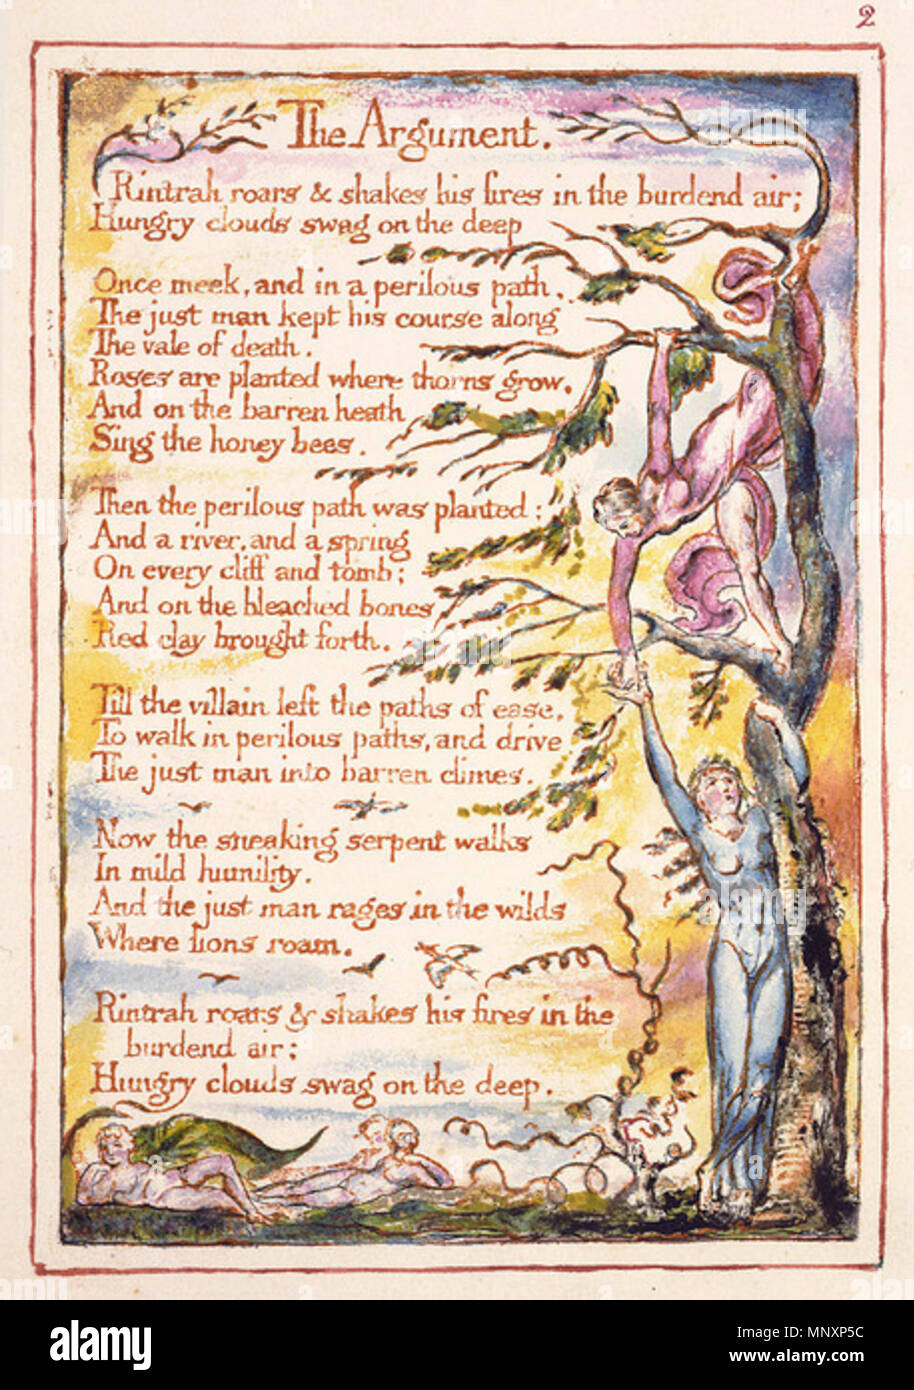 2
The Argument.
Rintrah roars & shakes his fires in the burdend air;
Hungry clouds swag on the deep
Once meek, and in a perilous path,
The just man kept his course along
The vale of death.
Roses are planted where thorns grow.
And on the barren heath
Sing the honey bees.
Then the perilous path was planted:
And a river, and a spring
On every cliff and tomb;
And on the bleached bones
Red clay brought forth.
Till the villain left the paths of ease,
To walk in perilous paths, and drive
The just man into barren climes.
Now the sneaking serpent walks
In mild humility.
And the just man rages in the wilds
Where lions roam.
Rintrah roars & shakes his fires in the
burdend air;
Hungry clouds swag on the deep.
alamy
Image ID: MNXP5C
www.alamy.com